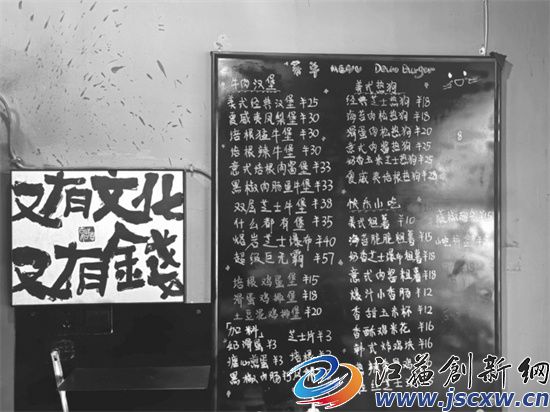 菜单 menu Devin burger
牛肉汉堡
美式经典汉堡 ¥25
夏威夷凤梨堡 ¥30
培根猛牛堡 ¥30
培根辣牛堡 ¥30
意式培根肉酱堡 ¥35
黑椒肉肠蛋牛堡 ¥33
双层芝士牛堡 ¥38
什么都有堡 ¥35
熔岩芝士瀑布 ¥40
超级巨无霸 ¥57
培根鸡蛋堡 ¥15
滑蛋鸡排堡 ¥18
土豆泥鸡排堡 ¥20
加料
芝士片 ¥3
滑蛋 ¥3
培根
溏心煎蛋 ¥3
黑椒肉肠
美式热狗
经典芝士热狗 ¥18
海苔肉松热狗 ¥18
滑蛋肉松热狗 ¥20
意式肉酱热狗 ¥25
奶香玉米芝士热狗 ¥18
夏威夷培根热狗 ¥25
快乐小吃
美式粗薯 ¥10
海苔脆脆粗薯 ¥14
奶香芝士瀑布粗薯 ¥18
意式肉酱粗薯 ¥18
爆汁小香肠 ¥12
香甜玉米杯 ¥12
香酥鸡米花 ¥16
韩式炸鸡块 ¥16
8
又有文化
又有金钱
江苏创新网
www.jscxw.cn